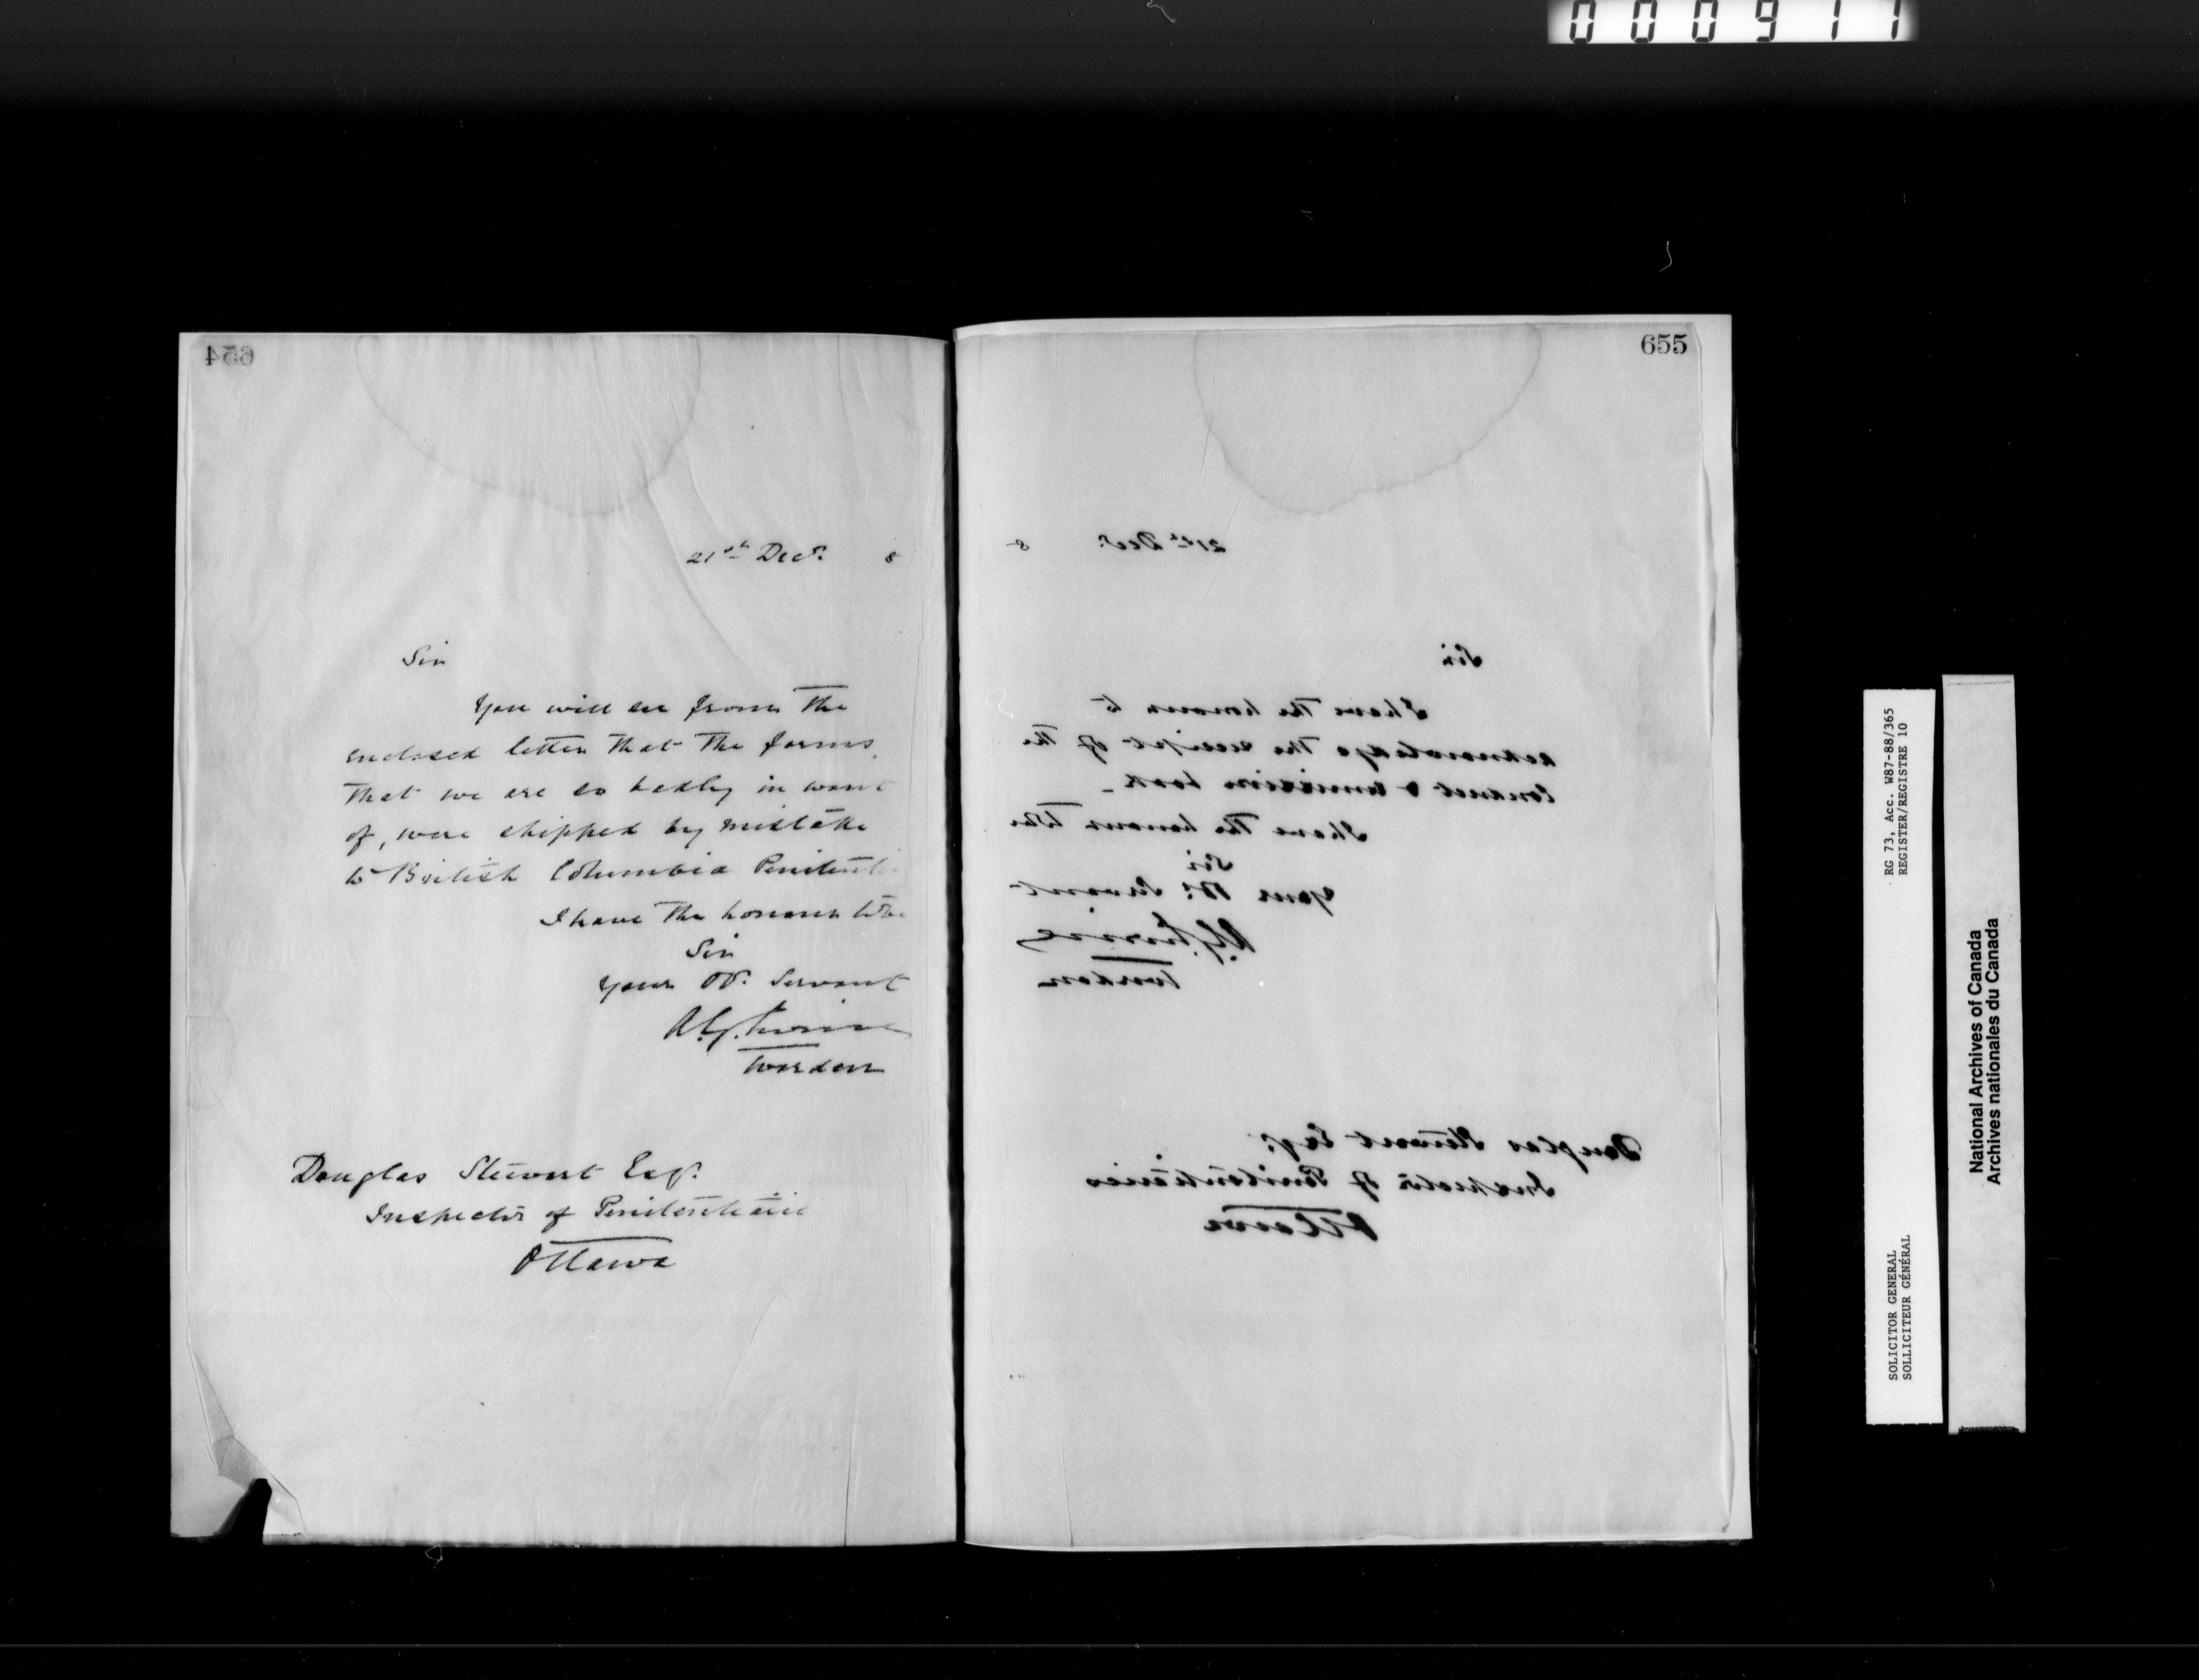 000911
654
21st Decr. 8
Sir
You will see from the
enclosed letter that the forms
that we are so badly in want
of, were shipped by mistake
to British Columbia Penitenti
I have the honour to be
Sir
Your Ob. Servant
A.G. Irvine
Warden
Douglas Stewart Esqr.
Inspector of Penitentiarie
Ottawa
655
21st Decr. 8
Sir
I have the honour to
acknowledge the receipt of the
Conduct & remission book
I have the honour to be
Sir
Your Ob. Servant
A.G. Irvine
Warden
Douglas Stewart Esqr.
Inspector of Penitentiaries
Ottawa
RG 73, Acc. W87-88/365
REGISTER/REGISTRE 10
SOLICITOR GENERAL
SOLLICITEUR GÉNÉRAL
National Archives of Canada
Archives nationales du Canada